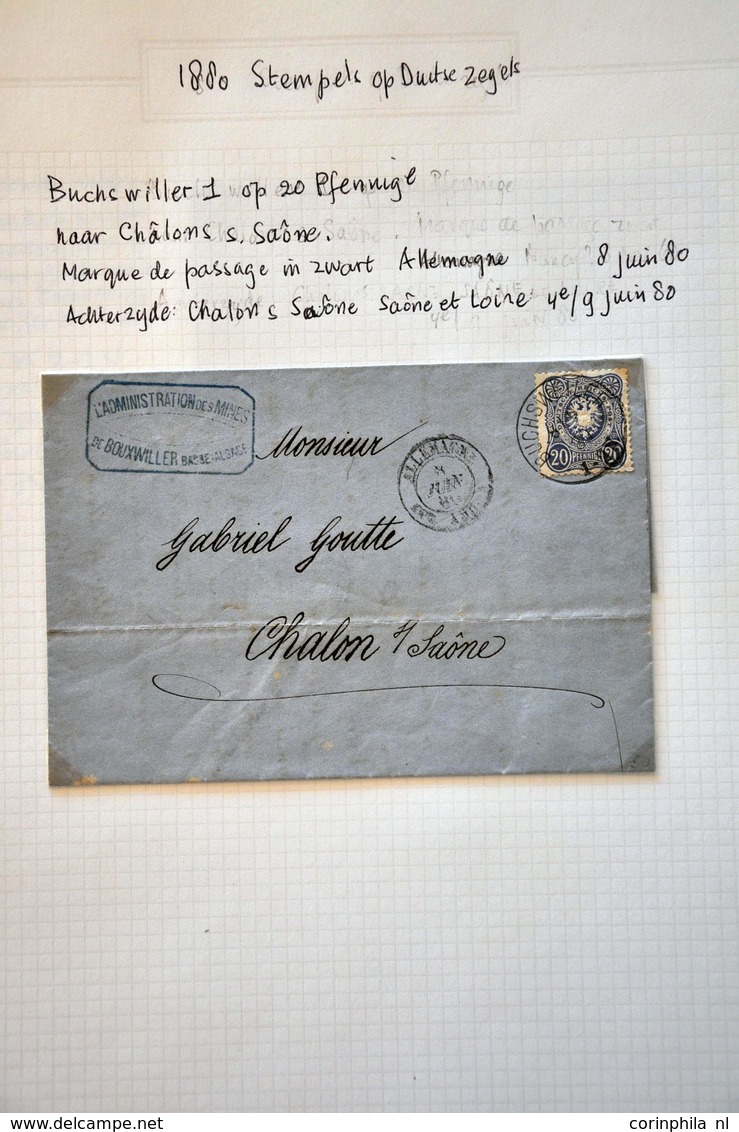 1880 Stempels op Duitse zegels
Buchswiller 1 op 20 Pfennige
naar Châlons s. Saône.
Marque de passage in zwart Allemagne 8 juin '80
Achterzyde: Chalon s Saône Saône et Loire 4e/9 juin 80
L'ADMINISTRATION DES MINES
DE BOUXWILLER BASSE-ALSACE
Monsieur
ALLEMAGNE
8
JUIN
80
BUCHSW
1
20 PFENNIGE 20
Gabriel Goutte
Chalon s/ Saône
www.delcampe.net
corinphila nl